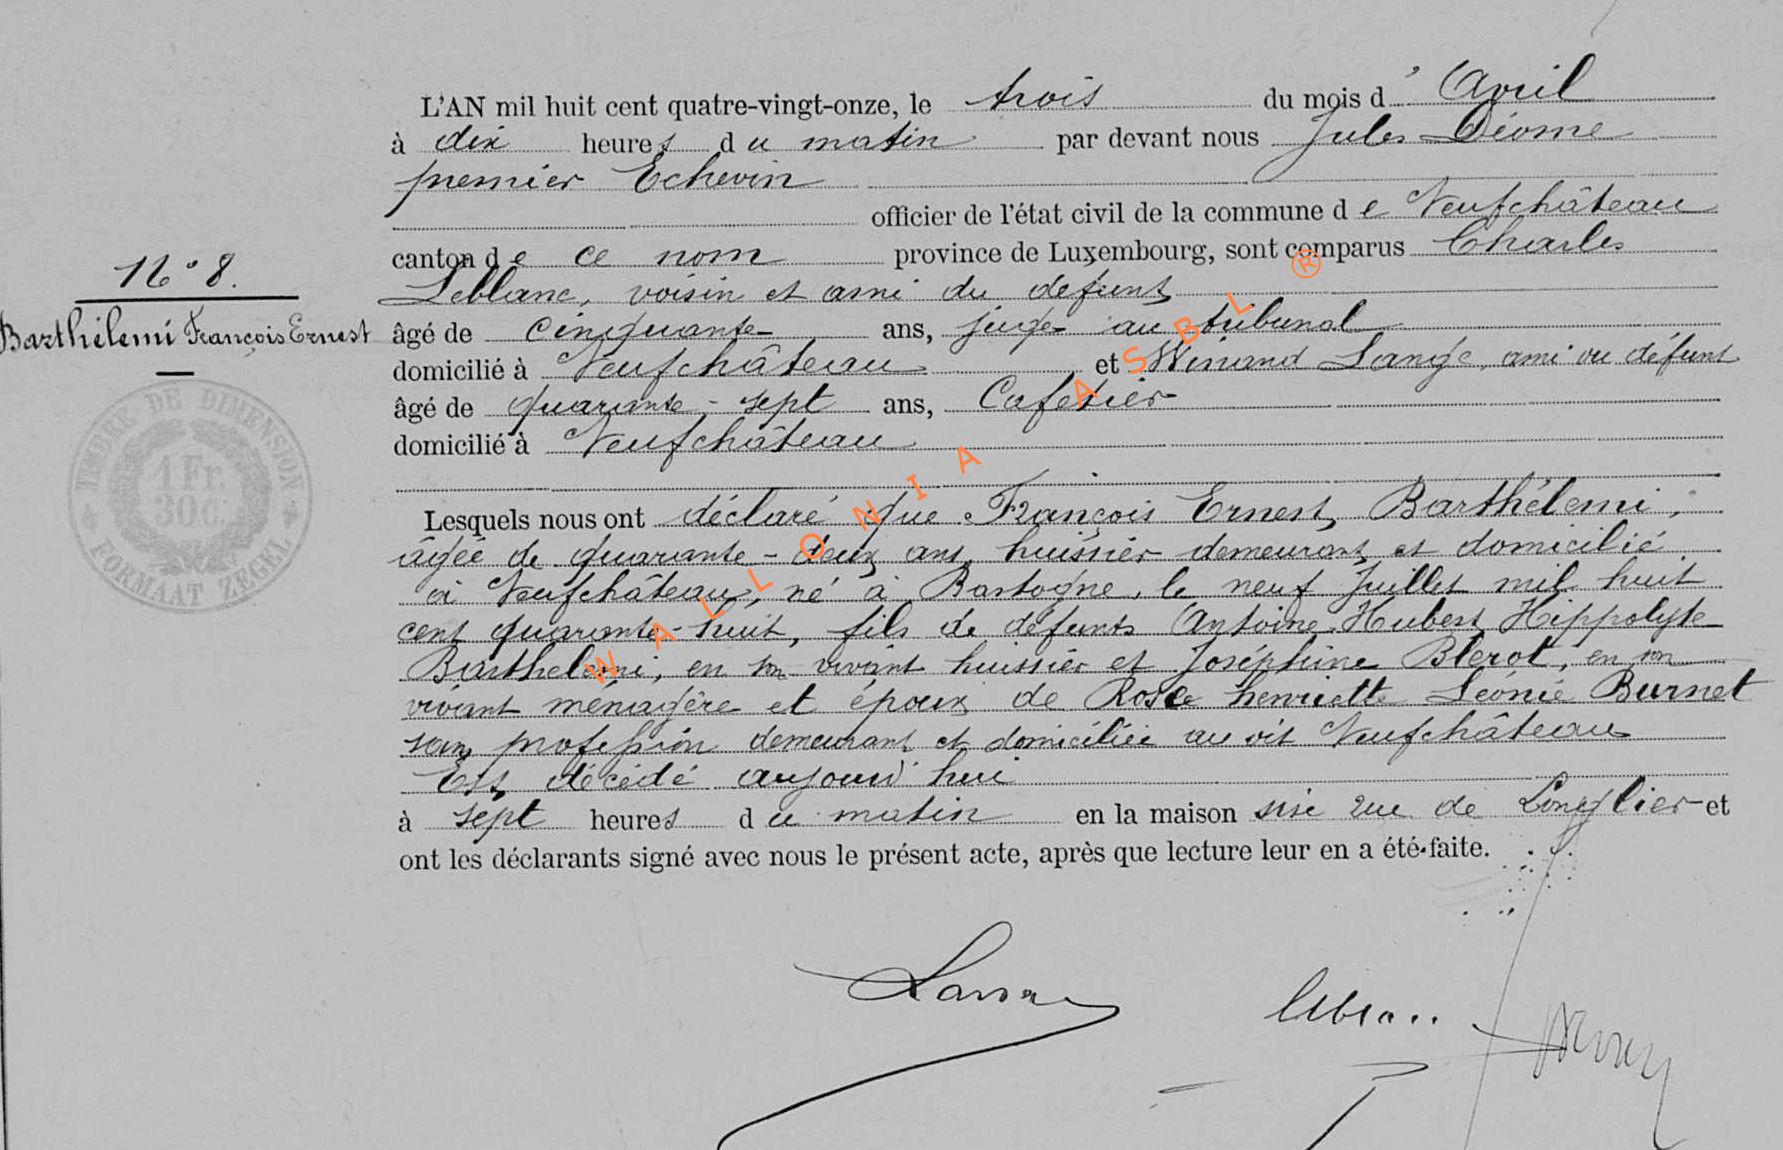 L'AN mil huit cent quatre-vingt-onze, le trois du mois d'Avril
à dix heures du matin par devant nous Jules Déome
premier Echevin
officier de l'état civil de la commune de Neufchâteau
canton de ce nom province de Luxembourg, sont comparus Charles
N° 8.
Leblanc, voisin et ami du défunt
Barthélemi François Ernest
âgé de cinquante ans, juge au tribunal
domicilié à Neufchâteau et Winand Lange, ami du défunt
âgé de quarante-sept ans, Cafetier
domicilié à Neufchâteau
TIMBRE DE DIMENSION
1 Fr.
30 C.
FORMAAT ZEGEL
Lesquels nous ont déclaré que François Ernest Barthélemi,
âgée de quarante-deux ans, huissier demeurant et domicilié
à Neufchâteau, né à Bastogne, le neuf Juillet mil huit
cent quarante-huit, fils de défunts Antoine Hubert Hippolyte
Barthelemi, en son vivant huissier et Joséphine Blerot, en son
vivant ménagère et époux de Rose henriette Léonie Burnet
sans profession demeurant et domiciliée au dit Neufchâteau
Est décédé aujourd'hui
à sept heures du matin en la maison sise rue de Longlier et
ont les déclarants signé avec nous le présent acte, après que lecture leur en a été faite.
WALLONIA ASBL ®